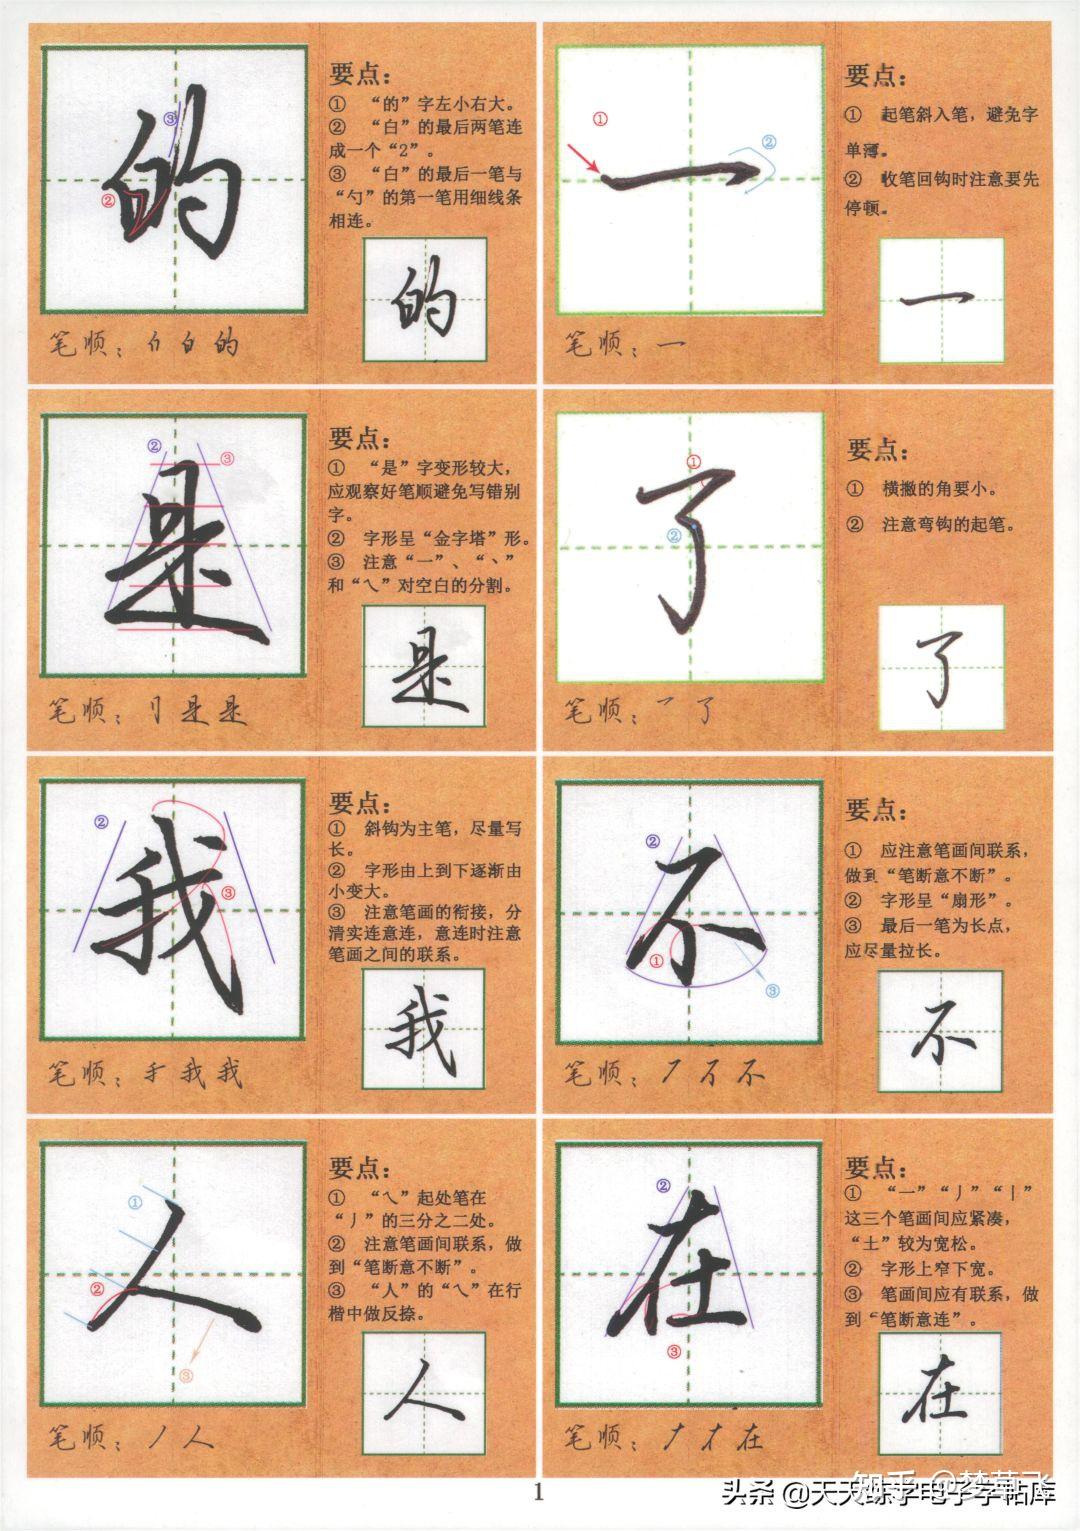 的
要点：
① “的”字左小右大。
② “白”的最后两笔连
成一个“2”。
③ “白”的最后一笔与
“勺”的第一笔用细线条
相连。
③
②
的
笔顺：白 的
一
要点：
① 起笔斜入笔，避免字
单薄。
② 收笔回钩时注意要先
停顿。
①
②
一
笔顺：一
是
要点：
① “是”字变形较大，
应观察好笔顺避免写错别
字。
② 字形呈“金字塔”形。
③ 注意“一”、“丶”
和“乀”对空白的分割。
②
③
是
笔顺：是 是
了
要点：
① 横撇的角要小。
② 注意弯钩的起笔。
①
②
了
笔顺：乛 了
我
要点：
① 斜钩为主笔，尽量写
长。
② 字形由上到下逐渐由
小变大。
③ 注意笔画的衔接，分
清实连意连，意连时注意
笔画之间的联系。
②
③
我
笔顺：我 我
不
要点：
① 应注意笔画间联系，
做到“笔断意不断”。
② 字形呈“扇形”。
③ 最后一笔为长点，
应尽量拉长。
②
①
③
不
笔顺：不
人
要点：
① “乀”起处笔在
“丿”的三分之二处。
② 注意笔画间联系，做
到“笔断意不断”。
③ “人”的“乀”在行
楷中做反捺。
①
②
③
人
笔顺：丿 人
在
要点：
① “一”“丿”“丨”
这三个笔画间应紧凑，
“土”较为宽松。
② 字形上窄下宽。
③ 笔画间应有联系，做
到“笔断意连”。
②
③
在
笔顺：在
1
知乎 @梦草飞
头条 @天天练字电子字帖库